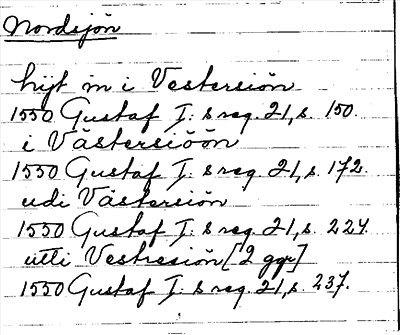 Nordsjön
hijt in i Vestersiön
1550 Gustaf I:s reg. 21, s. 150.
i Västersiöön
1550 Gustaf I:s reg. 21, s. 172.
udi Västersiön
1550 Gustaf I:s reg. 21, s. 224.
utti Vestresiön [2 ggr]
1550 Gustaf I:s reg. 21, s. 237.